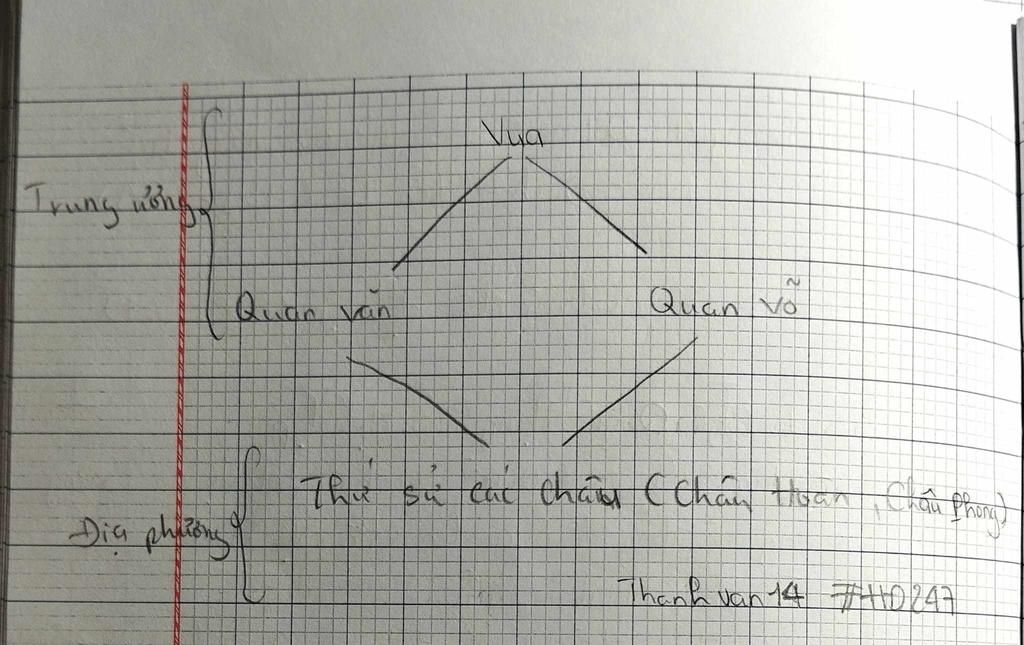 Vua
Trung ương
Quan văn
Quan võ
Thứ sử các châu (Châu Hoan, Châu Phong)
Địa phương
Thanhvan14 #HD247